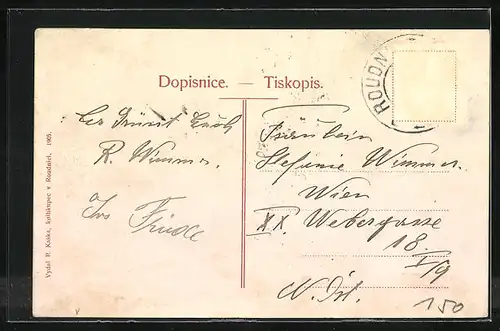 Dopisnice. — Tiskopis.
ROUDN
R. Wimmer.
Fräulein
Stefanie Wimmer.
Wien
XX Webergasse
18
I/9
N. Öst.
150
Vydal R. Kaska, knihkupec v Roudnici. 1905.